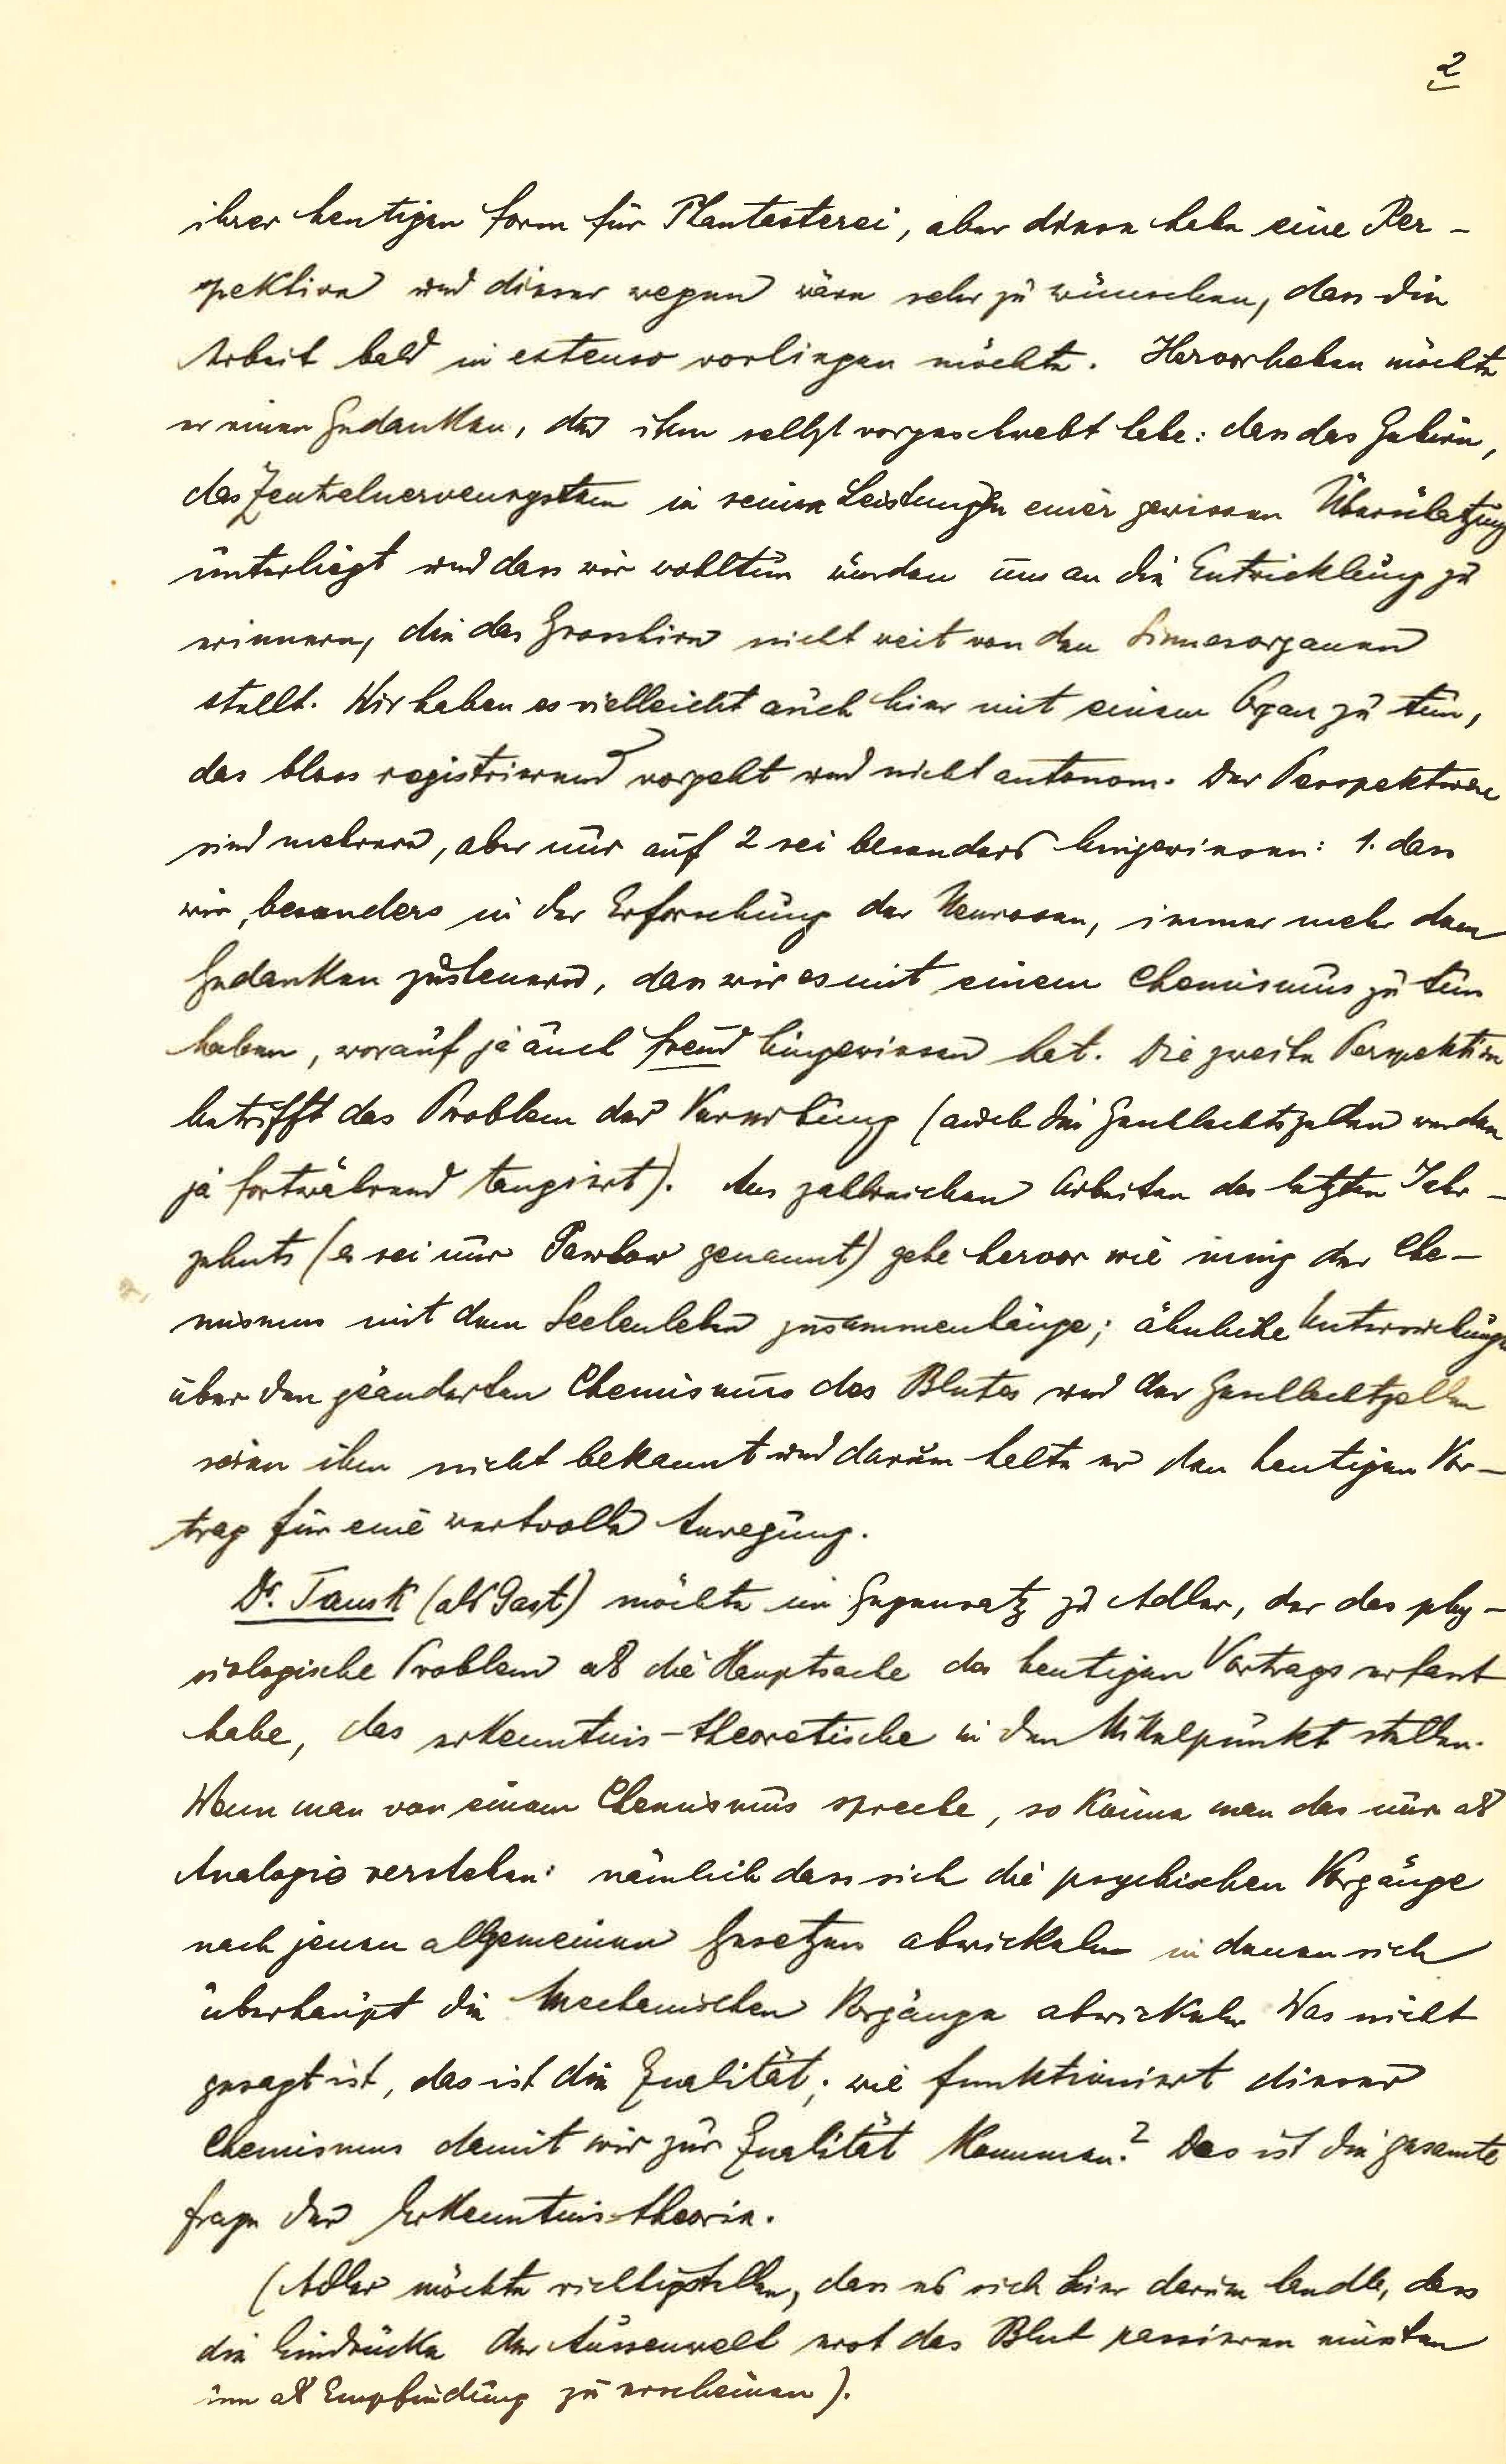 2
ihrer heutigen Form für Phantasterei, aber diese habe eine Per-
spektive und dieser wegen wäre sehr zu wünschen, dass die
Arbeit bald in extenso vorliegen möchte. Hervorheben möchte
er einen Gedanken, der ihm selbst vorgeschwebt habe: dass das Gehirn,
das Zentralnervensystem in seinen Leistungen einer gewissen Überschätzung
unterliegt und dass wir wohltun würden uns an die Entwicklung zu
erinnern, die das Grosshirn nicht weit von den Sinnesorganen
stellt. Wir haben es vielleicht auch hier mit einem Organ zu tun,
das bloss registrierend vorgeht und nicht autonom. Der Perspektiven
sind mehrere, aber nur auf 2 sei besonders hingewiesen: 1. dass
wir, besonders in der Erforschung der Neurosen, immer mehr dem
Gedanken zusteuern, dass wir es mit einem Chemismus zu tun
haben, worauf ja auch Freud hingewiesen hat. Die zweite Perspektive
betrifft das Problem der Vererbung (auch die Geschlechtszellen werden
ja fortwährend tangiert). Aus zahlreichen Arbeiten des letzten Jahr-
zehnts (es sei nur Pawlow genannt) gehe hervor wie innig der Che-
mismus mit dem Seelenleben zusammenhänge; ähnliche Untersuchungen
über den geänderten Chemismus des Blutes und der Geschlechtszellen
seien ihm nicht bekannt und darum halte er den heutigen Vor-
trag für eine wertvolle Anregung.
Dr. Tausk (als Gast) möchte im Gegensatz zu Adler, der das phy-
siologische Problem als die Hauptsache des heutigen Vortrags erfasst
habe, das erkenntnis-theoretische in den Mittelpunkt stellen.
Wenn man von einem Chemismus spreche, so könne man das nur als
Analogie verstehen: nämlich dass sich die psychischen Vorgänge
nach jenen allgemeinen Gesetzen abwickeln in denen sich
überhaupt die mechanischen Vorgänge abwickeln. Was nicht
gesagt ist, das ist die Qualität; wie funktioniert dieser
Chemismus damit wir zur Qualität kommen? Das ist die gesamte
Frage der Erkenntnis-theorie.
(Adler möchte richtigstellen, dass es sich hier darum handle, dass
die Eindrücke der Aussenwelt erst das Blut passieren müssten
um als Empfindung zu erscheinen).